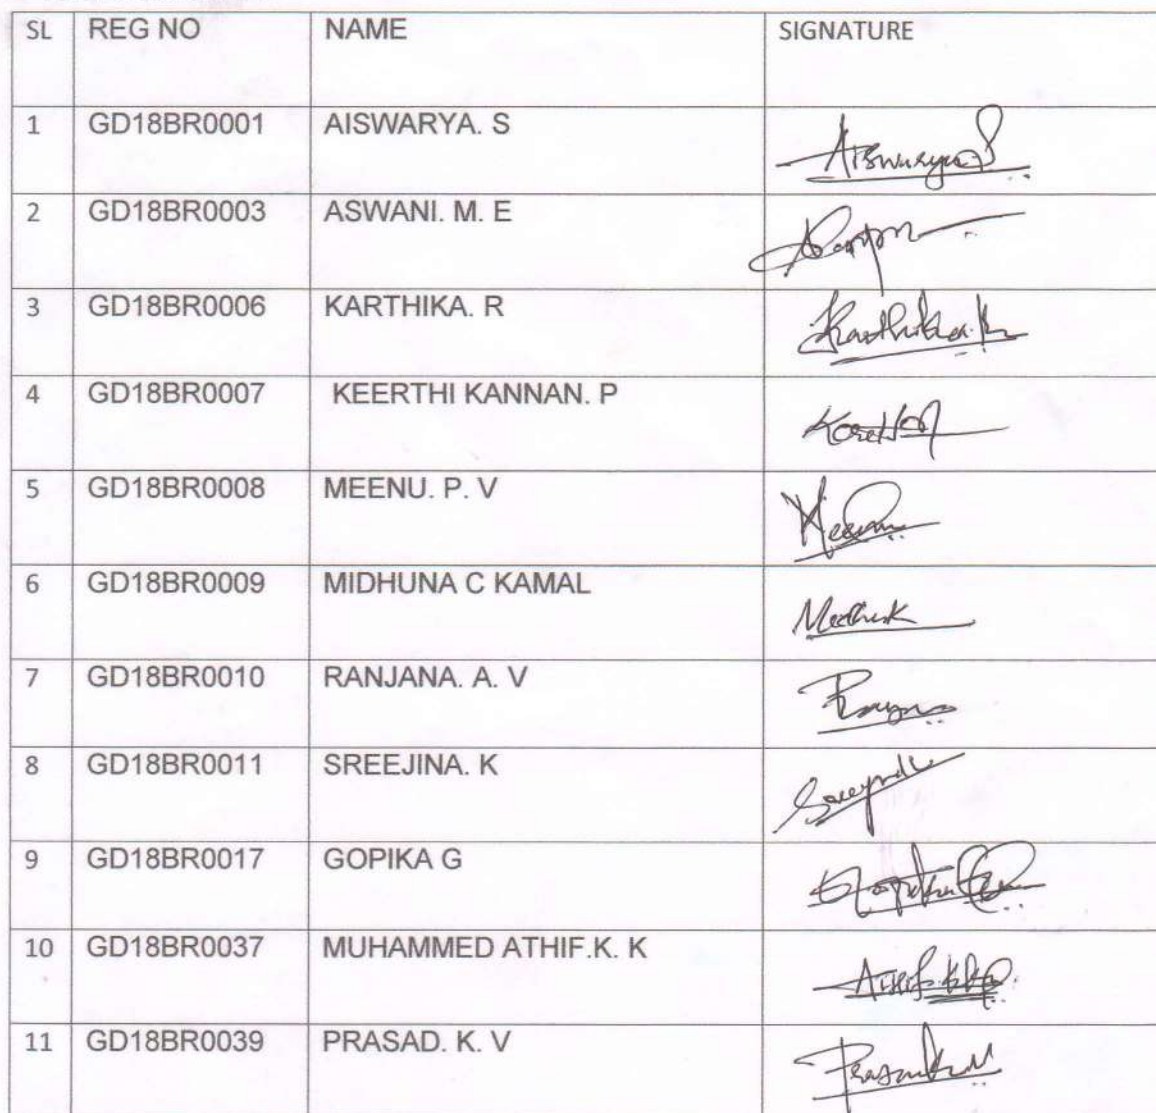 SL REG NO NAME SIGNATURE
1 GD18BR0001 AISWARYA. S Aiswarya S
2 GD18BR0003 ASWANI. M. E
3 GD18BR0006 KARTHIKA. R Karthika. R
4 GD18BR0007 KEERTHI KANNAN. P
5 GD18BR0008 MEENU. P. V Meenu
6 GD18BR0009 MIDHUNA C KAMAL
7 GD18BR0010 RANJANA. A. V
8 GD18BR0011 SREEJINA. K
9 GD18BR0017 GOPIKA G
10 GD18BR0037 MUHAMMED ATHIF.K. K Athif. KK
11 GD18BR0039 PRASAD. K. V